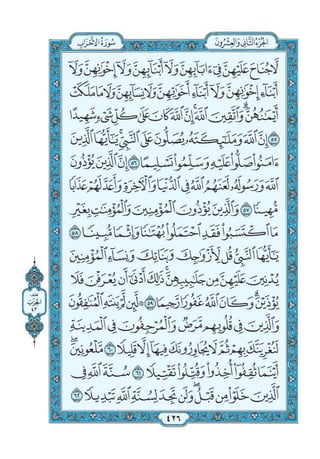 الجزء الثاني والعشرون
سورة الأحزاب
لَّا جُنَاحَ عَلَيْهِنَّ فِىٓ ءَابَآئِهِنَّ وَلَآ أَبْنَآئِهِنَّ وَلَآ إِخْوَٰنِهِنَّ وَلَآ
أَبْنَآءِ إِخْوَٰنِهِنَّ وَلَآ أَبْنَآءِ أَخَوَٰتِهِنَّ وَلَا نِسَآئِهِنَّ وَلَا مَا مَلَكَتْ
أَيْمَٰنُهُنَّ ۗ وَٱتَّقِينَ ٱللَّهَ ۚ إِنَّ ٱللَّهَ كَانَ عَلَىٰ كُلِّ شَىْءٍ شَهِيدًا
٥٥ إِنَّ ٱللَّهَ وَمَلَٰٓئِكَتَهُۥ يُصَلُّونَ عَلَى ٱلنَّبِىِّ ۚ يَٰٓأَيُّهَا ٱلَّذِينَ
ءَامَنُوا۟ صَلُّوا۟ عَلَيْهِ وَسَلِّمُوا۟ تَسْلِيمًا ٥٦ إِنَّ ٱلَّذِينَ يُؤْذُونَ
ٱللَّهَ وَرَسُولَهُۥ لَعَنَهُمُ ٱللَّهُ فِى ٱلدُّنْيَا وَٱلْءَاخِرَةِ وَأَعَدَّ لَهُمْ عَذَابًا
مُّهِينًا ٥٧ وَٱلَّذِينَ يُؤْذُونَ ٱلْمُؤْمِنِينَ وَٱلْمُؤْمِنَٰتِ بِغَيْرِ
مَا ٱكْتَسَبُوا۟ فَقَدِ ٱحْتَمَلُوا۟ بُهْتَٰنًا وَإِثْمًا مُّبِينًا ٥٨
يَٰٓأَيُّهَا ٱلنَّبِىُّ قُل لِّأَزْوَٰجِكَ وَبَنَاتِكَ وَنِسَآءِ ٱلْمُؤْمِنِينَ
يُدْنِينَ عَلَيْهِنَّ مِن جَلَٰبِيبِهِنَّ ۚ ذَٰلِكَ أَدْنَىٰٓ أَن يُعْرَفْنَ فَلَا
يُؤْذَيْنَ ۗ وَكَانَ ٱللَّهُ غَفُورًا رَّحِيمًا ٥٩ ۞ لَّئِن لَّمْ يَنتَهِ ٱلْمُنَٰفِقُونَ
وَٱلَّذِينَ فِى قُلُوبِهِم مَّرَضٌ وَٱلْمُرْجِفُونَ فِى ٱلْمَدِينَةِ
لَنُغْرِيَنَّكَ بِهِمْ ثُمَّ لَا يُجَاوِرُونَكَ فِيهَآ إِلَّا قَلِيلًا ٦٠ مَّلْعُونِينَ ۖ
أَيْنَمَا ثُقِفُوٓا۟ أُخِذُوا۟ وَقُتِّلُوا۟ تَقْتِيلًا ٦١ سُنَّةَ ٱللَّهِ فِى
ٱلَّذِينَ خَلَوْا۟ مِن قَبْلُ ۖ وَلَن تَجِدَ لِسُنَّةِ ٱللَّهِ تَبْدِيلًا ٦٢
٤٢٦